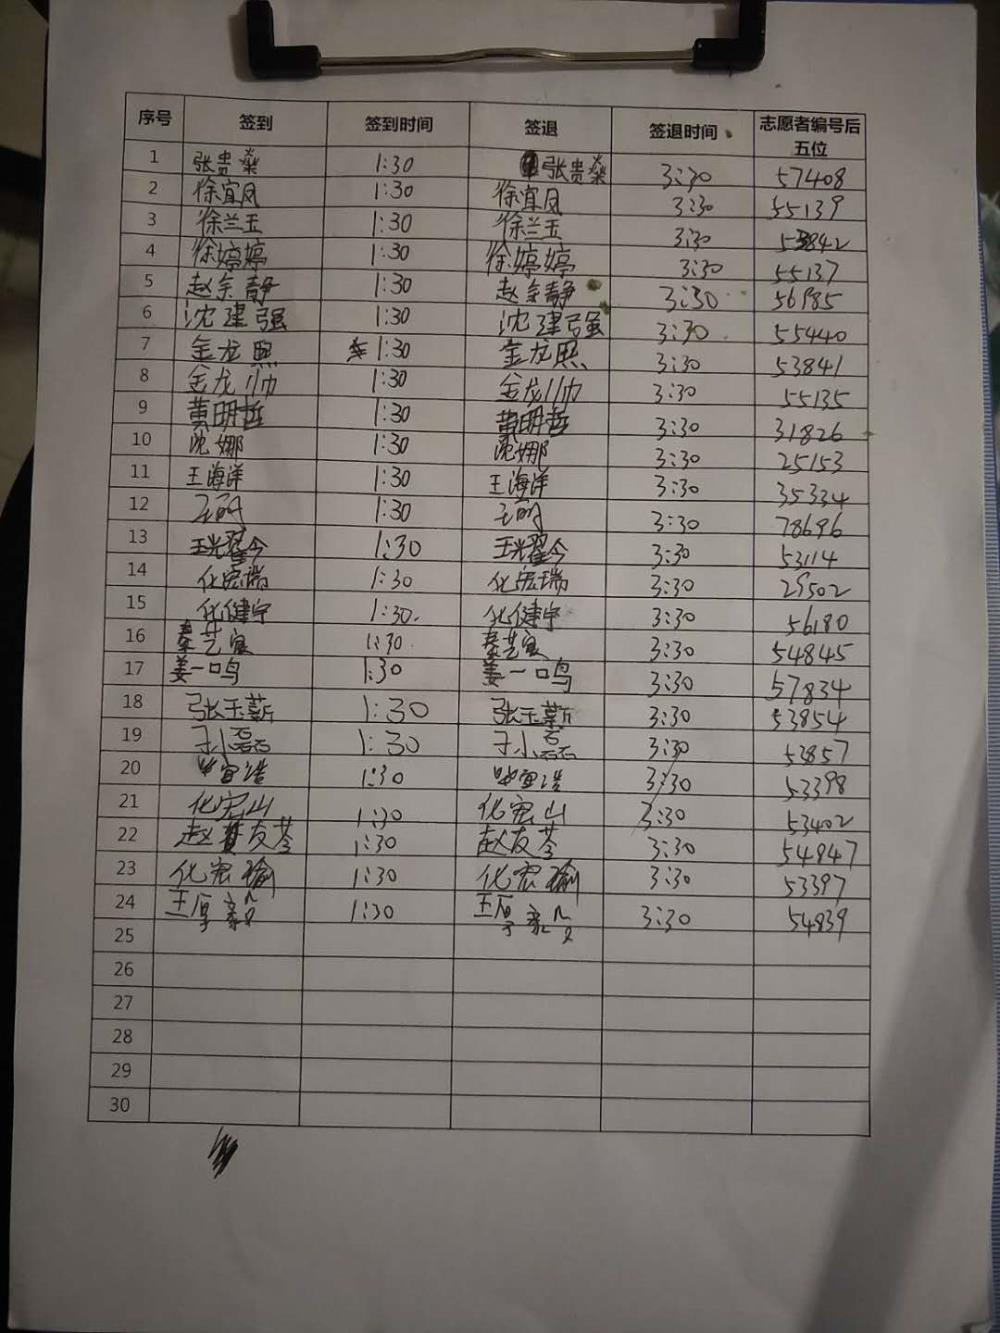 序号 签到 签到时间 签退 签退时间 志愿者编号后五位
1 张贵燊 1:30 张贵燊 3:30 57408
2 徐宜凤 1:30 徐宜凤 3:30 55139
3 徐兰玉 1:30 徐兰玉 3:30 53842
4 徐婷婷 1:30 徐婷婷 3:30 55137
5 赵余静 1:30 赵余静 3:30 56985
6 沈建强 1:30 沈建强 3:30 55440
7 金龙熙 1:30 金龙熙 3:30 53841
8 金龙帅 1:30 金龙帅 3:30 55135
9 黄明哲 1:30 黄明哲 3:30 31826
10 沈娜 1:30 沈娜 3:30 25153
11 王海洋 1:30 王海洋 3:30 35334
12 1:30 3:30 78696
13 1:30 3:30 53114
14 化宏瑞 1:30 化宏瑞 3:30 29502
15 化健宁 1:30. 化健宁 3:30 56180
16 秦艺宸 1:30. 秦艺宸 3:30 54845
17 姜一鸣 1:30 姜一鸣 3:30 57834
18 张玉薪 1:30 张玉薪 3:30 53854
19 于小磊 1:30 于小磊 3:30 53857
20 1:30 3:30 53398
21 化宏山 1:30 化宏山 3:30 53402
22 赵友苓 1:30 赵友苓 3:30 54947
23 化宏瑜 1:30 化宏瑜 3:30 53397
24 1:30 3:30 54839
25
26
27
28
29
30